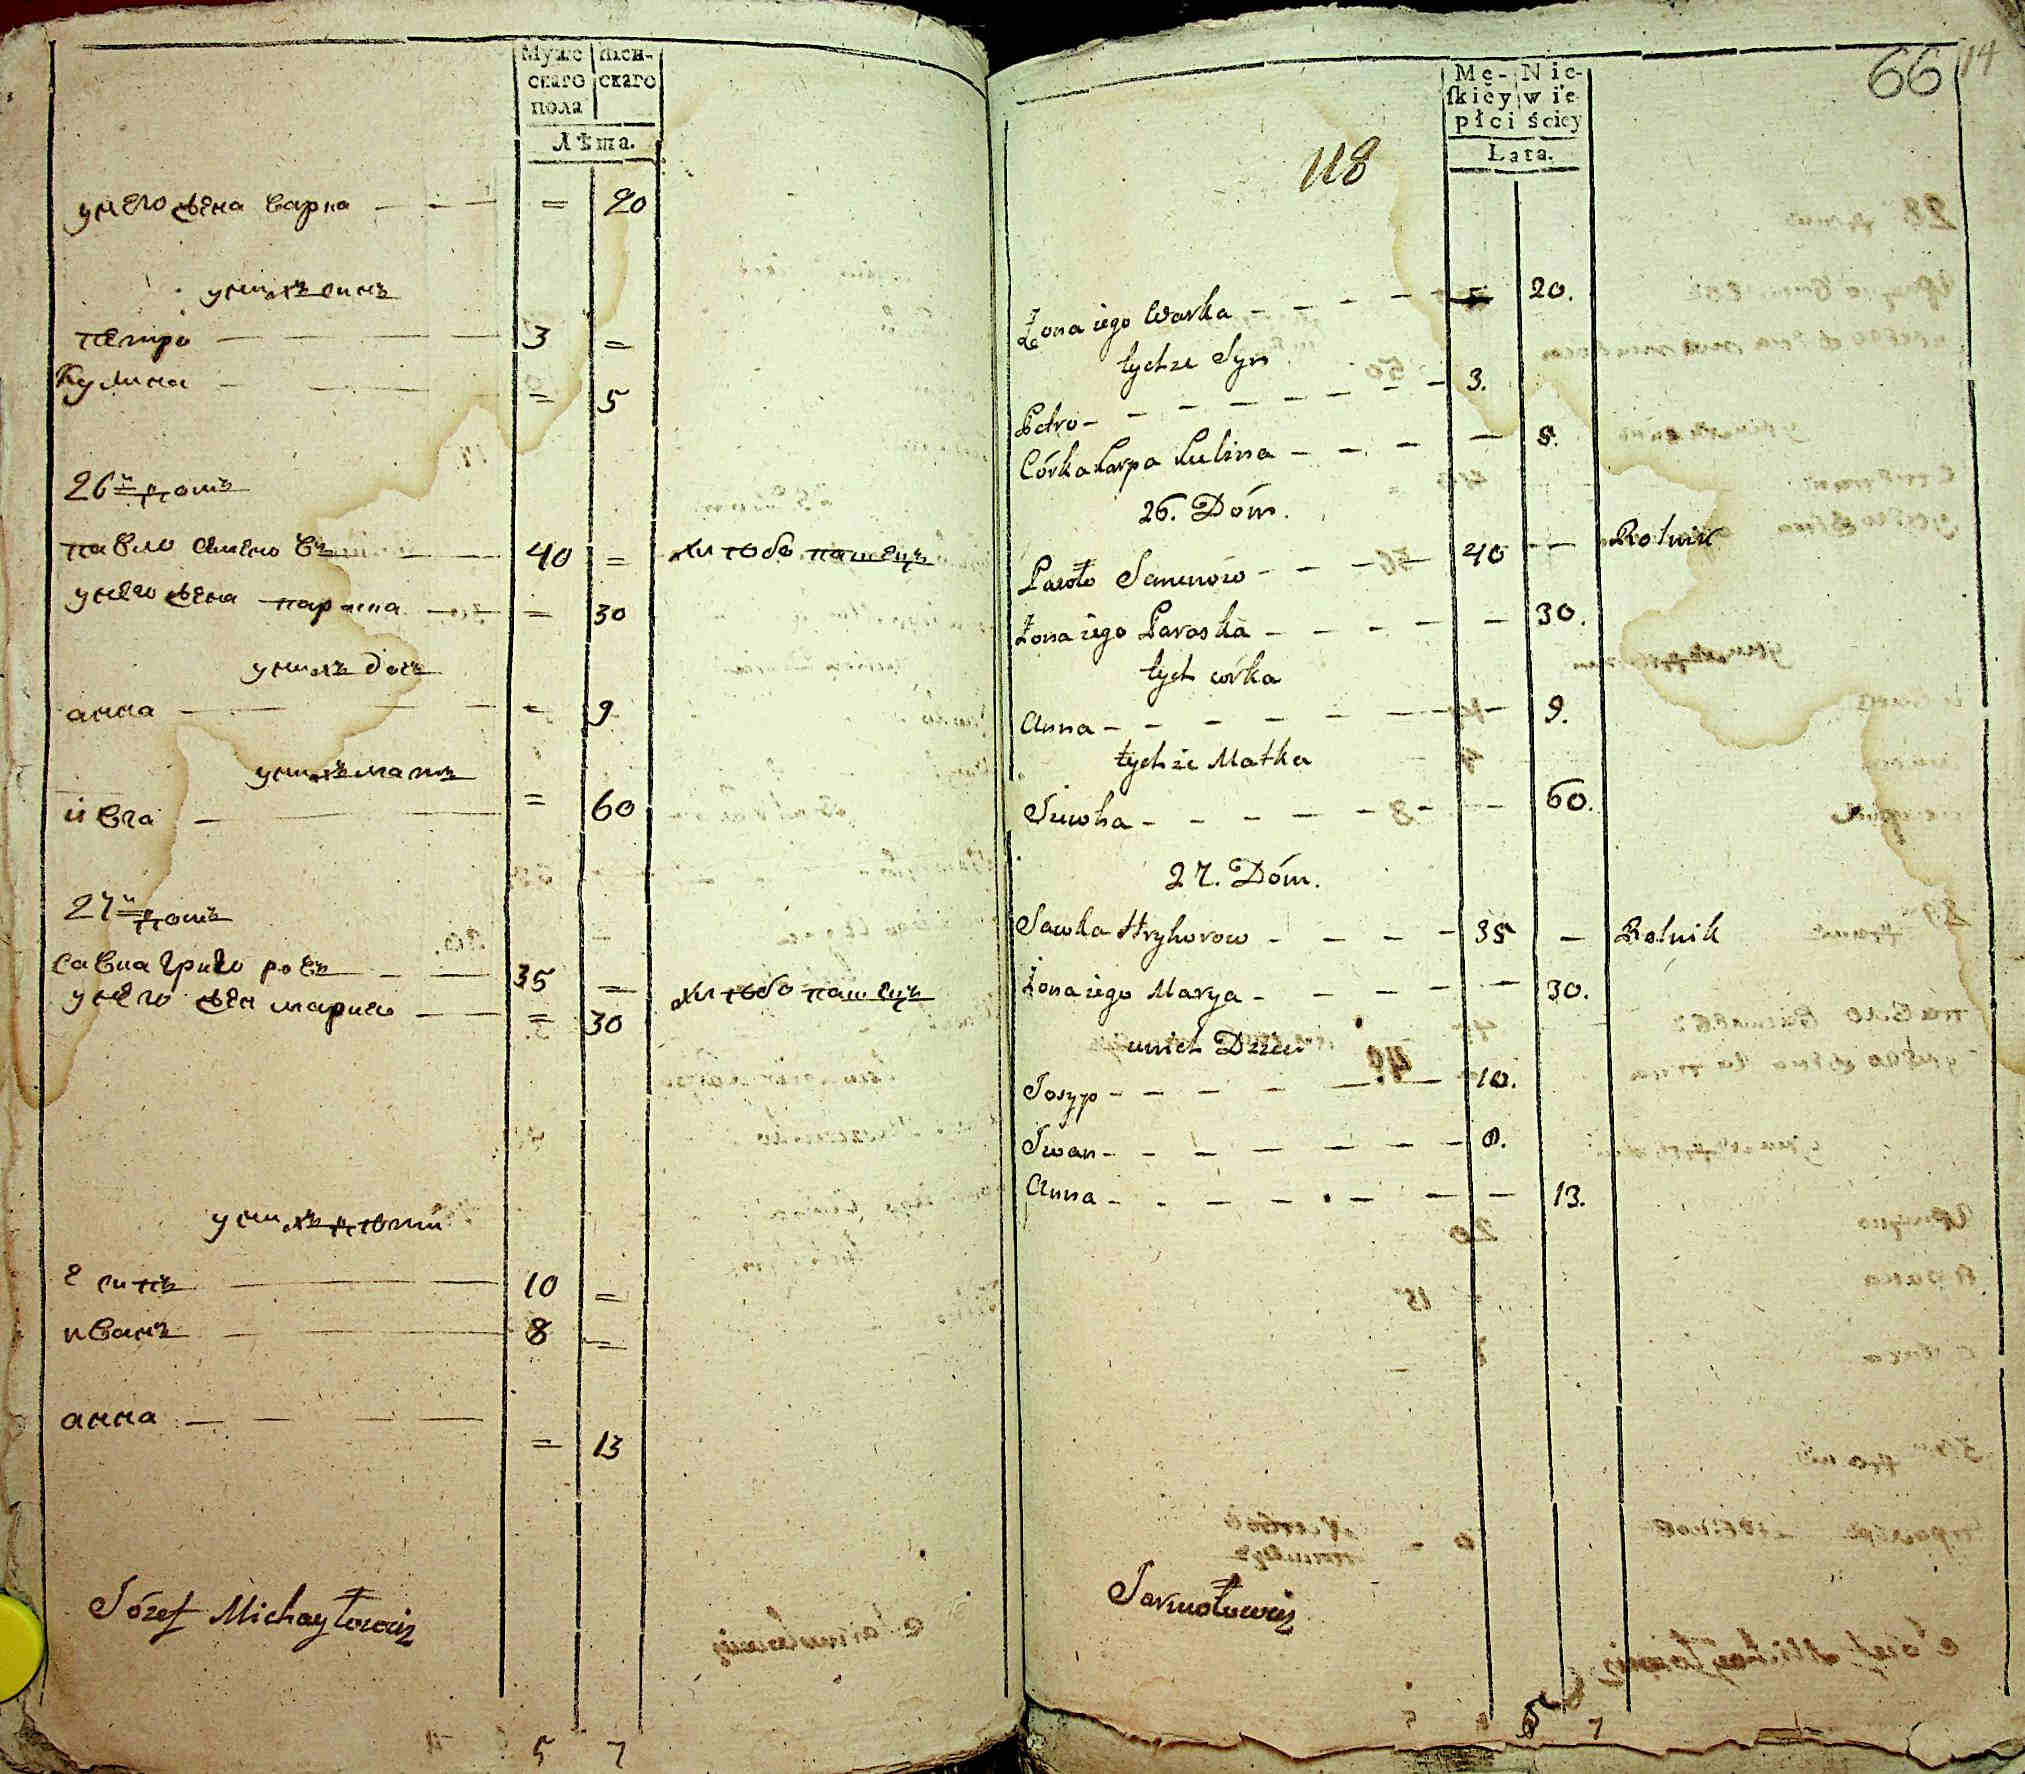 Муже
скаго
пола
Жен-
скаго
Лѣта.
у него жена варка — — — = 20
у них сынъ
петро — 3 =
Кулина — = 5
26й домъ
павло — 40 = хлѣбо пашецъ
у него жена параска — = 30
у нихъ дочъ
анна — = 9
у нихъ мать
ивга — = 60
27й домъ
савка григоровъ — 35 = хлѣбо пашецъ
у него жен мария — = 30
у нихъ дѣти
есипъ — 10 =
иванъ — 8 =
анна — = 13
Józef Michayłowicz
5 7
66
14
Mę-
skiey
płci
Nie-
wie
ściey
Lata.
118
Żona iego Warka - - - - - 20.
tychże Syn
Petro - - - - - - - 3.
Córka Karpa Kulina - - - - 5.
26. Dóm.
Pawło Semenow - - - - 40 - - Rolnik
Żona iego Paraska - - - - - 30.
tych córka
Anna - - - - - - - - 9.
tychże Matka
Jiwha - - - - - - - 60.
27. Dóm.
Sawka Hryhorow - - - - 35 - Rolnik
Żona iego Marya - - - - - 30.
unich Dzieci
Josyp - - - - - - 10.
Iwan - - - - - - - 8.
Anna - - - - - - - 13.
Jarmołowicz
5 7